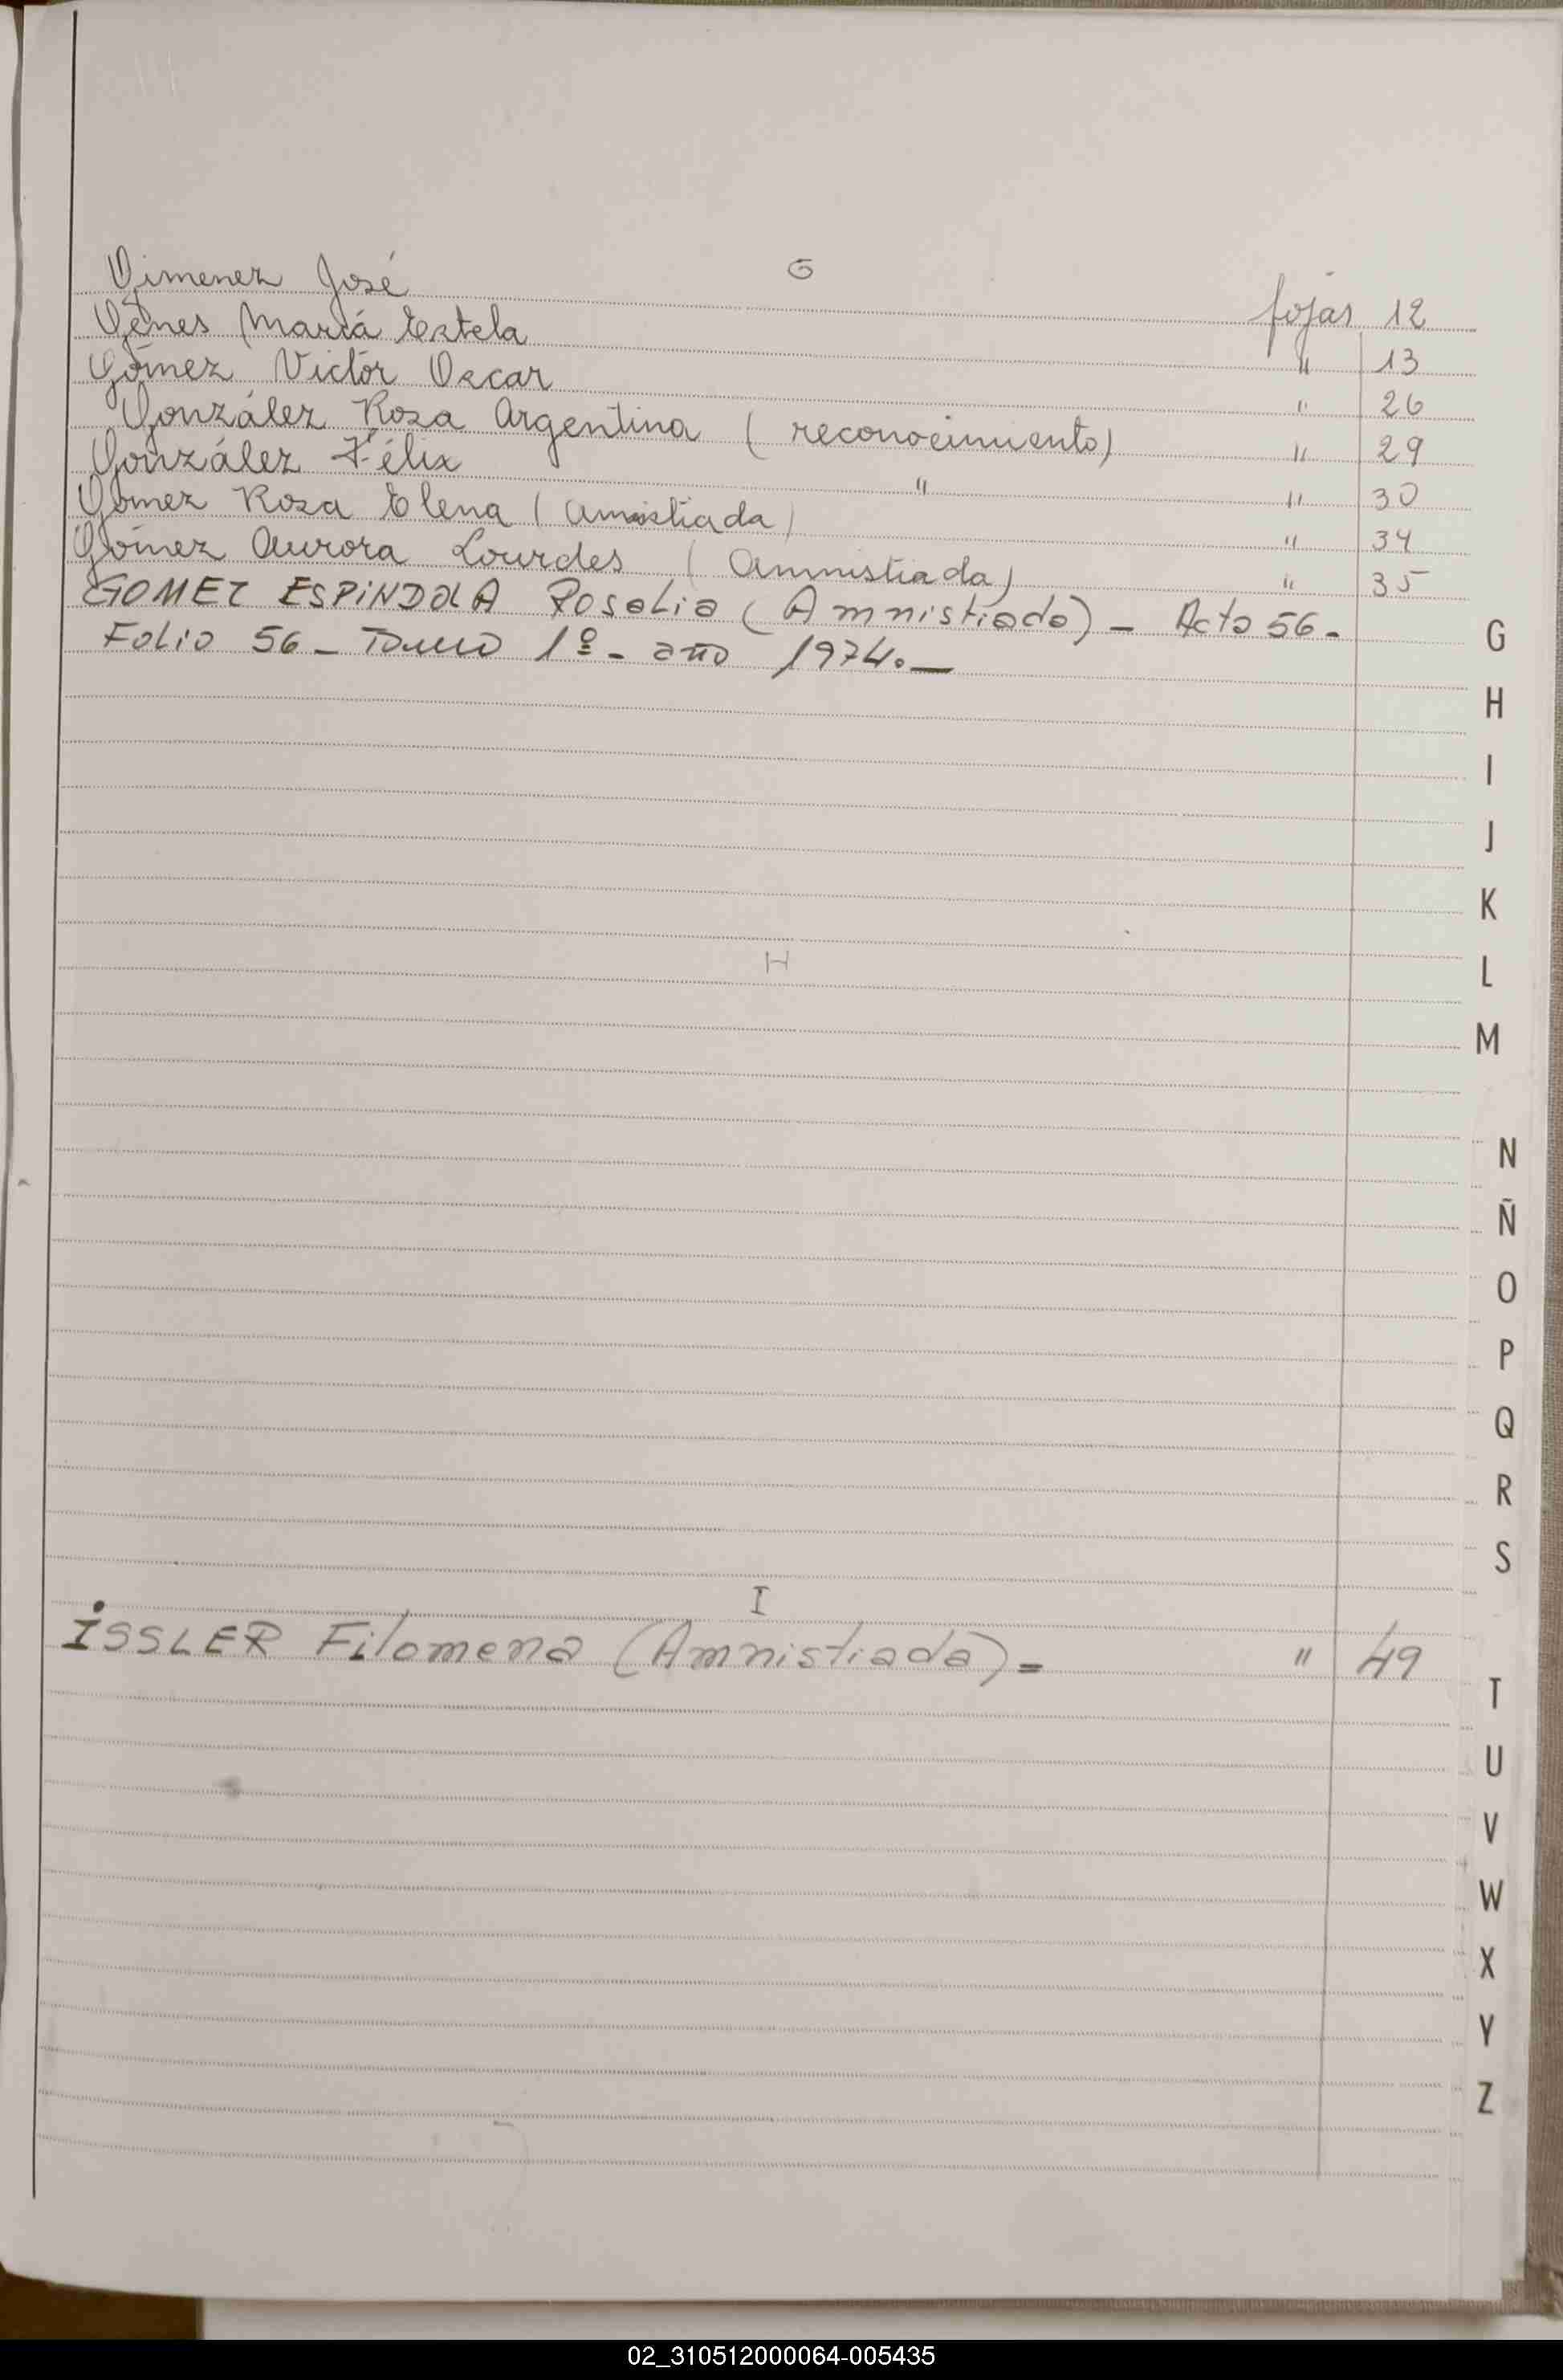 G
Gimenez José fojas 12
Genes María Estela " 13
Gómez Victor Oscar " 26
González Rosa Argentina (reconocimiento) " 29
González Félix " " 30
Gómez Rosa Elena (amnistiada) " 34
Gómez Aurora Lourdes (Amnistiada) " 35
GOMEZ ESPINDOLA Rosalia (Amnistiada) - Acta 56-
Folio 56 - Tomo 1º - año 1974.-
H
I
ISSLER Filomena (Amnistiada) = " 49
G
H
I
J
K
L
M
N
Ñ
O
P
Q
R
S
T
U
V
W
X
Y
Z
02_310512000064-005435